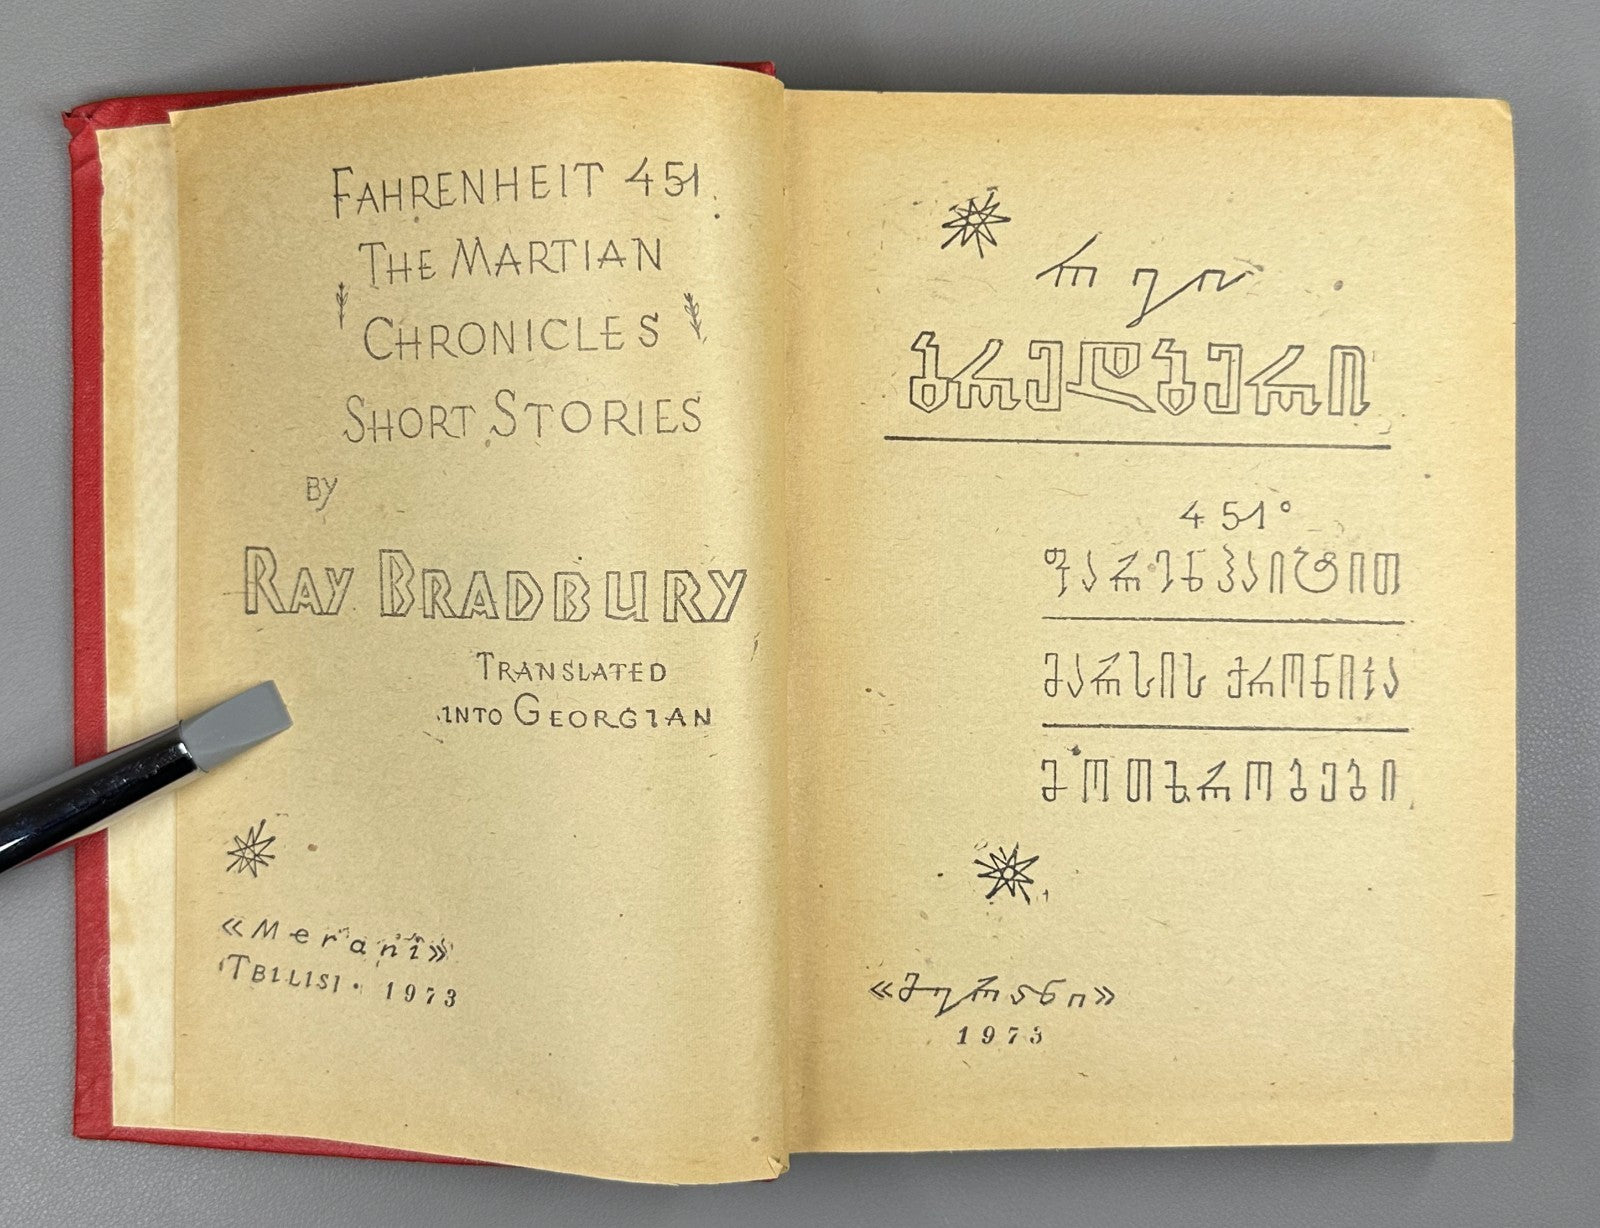 FAHRENHEIT 451
THE MARTIAN
CHRONICLES
SHORT STORIES
BY
RAY BRADBURY
TRANSLATED
INTO GEORGIAN
«Merani»
TBILISI · 1973
რეი
ბრედბერი
451°
ფარენჰაიტით
მარსის ქრონიკა
მოთხრობები
«მერანი»
1973